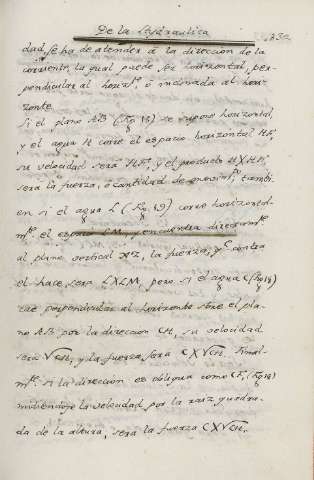 De la Hydraulica 232
dad, se ha de atender à la direccion de la
corriente, la qual puede ser horizontal, per-
pendicular al horizte. ò inclinada al hori-
zonte.
Si el plano AB (Fig 18) se supone horizontal,
y el agua H corre el espacio horizontal HF,
su velocidad sera HF, y el producto HXHF,
sera la fuerza, ò cantidad de movimto. tambi-
en si el agua L (Fig. 19) corre horizontal-
mte. el espacio LM, y encuentra directamte
al plano vertical XZ, la fuerza, q.e contra
el hace, sera LXLM, pero si el agua C (Fig 18)
cae perpendicular al horizonte sbre el pla-
no AB por la direccion CH, su velocidad
sera √CH, y la fuerza sera CX√CH. final-
mte. si la direccion es obliqua como CF, (Fig 18)
midiendose la velocidad por la raiz quadra-
da de la altura, sera la fuerza CX√CH.